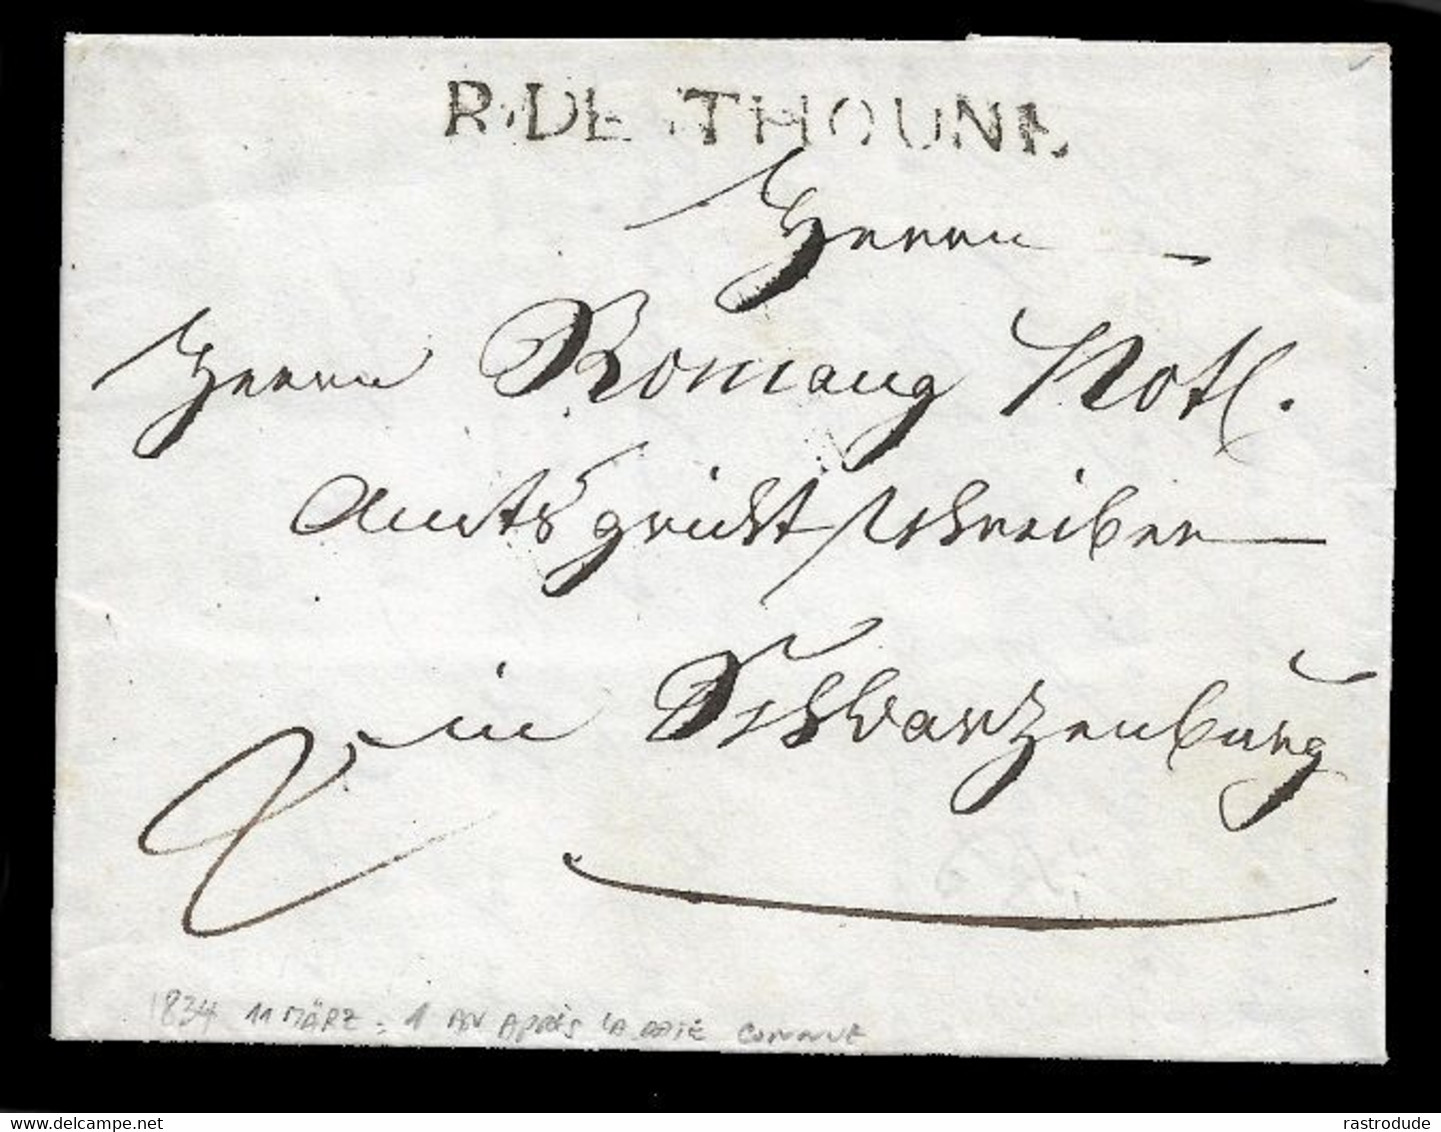 R. DE THOUNE
Herrn
Herrn Romang Not.
Amtsgerichtschreiber
in Schwarzenburg
1834 11 MÄRZ = 1 AN APRÈS LA DATE CONNUE
delcampe.net
rastrodude